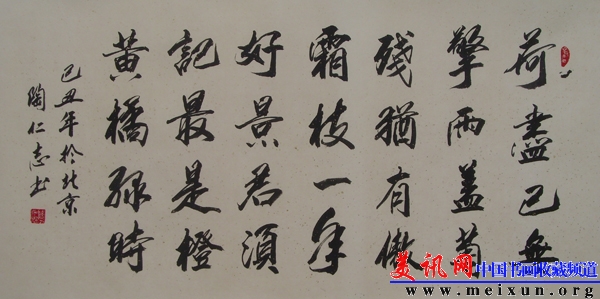 荷盡已無
擎雨盖菊
殘猶有傲
霜枝一年
好景君須
記最是橙
黄橘緑時
己丑年於北京
陶仁志书
美讯网 中国书画收藏频道
www.meixun.org